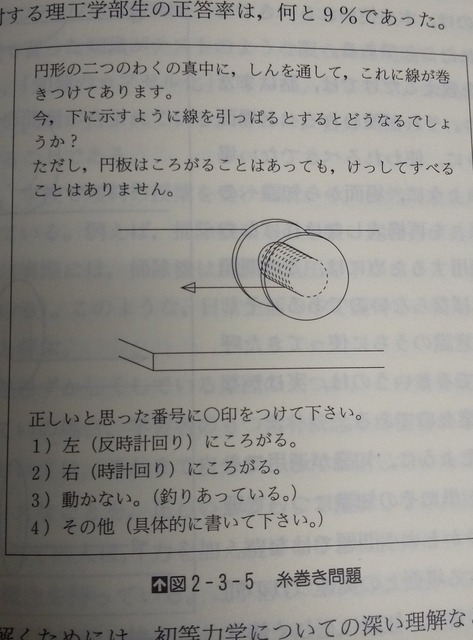 対する理工学部生の正答率は，何と9％であった。
円形の二つのわくの真中に，しんを通して，これに線が巻
きつけてあります。
今，下に示すように線を引っぱるとするとどうなるでしょ
うか？
ただし，円板はころがることはあっても，けっしてすべる
ことはありません。
正しいと思った番号に○印をつけて下さい。
1）左（反時計回り）にころがる。
2）右（時計回り）にころがる。
3）動かない。（釣りあっている。）
4）その他（具体的に書いて下さい。）
図2-3-5 糸巻き問題
解くためには，初等力学についての深い理解な